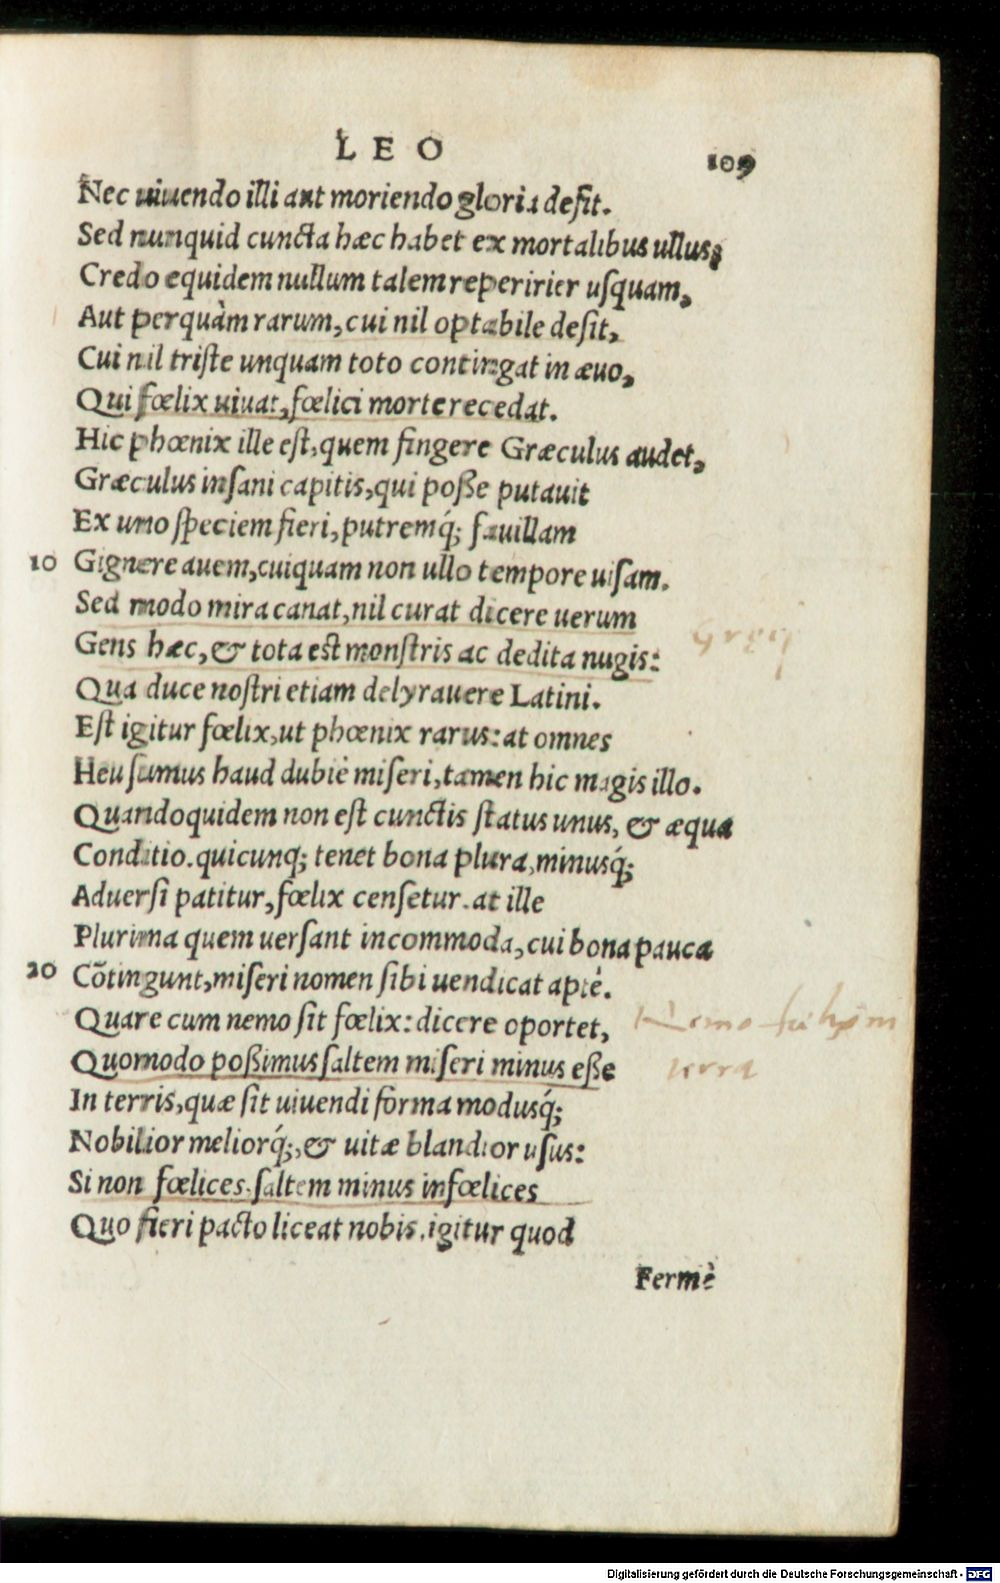 LEO
109
Nec uiuendo illi aut moriendo gloria desit.
Sed nunquid cuncta hæc habet ex mortalibus ullus;
Credo equidem nullum talem reperirier usquam,
Aut perquàm rarum, cui nil optabile desit,
Cui nil triste unquam toto contingat in æuo,
Qui fœlix uiuat, fœlici morte recedat.
Hic phœnix ille est, quem fingere Græculus audet,
Græculus insani capitis, qui poße putauit
Ex uno speciem fieri, putremq́; fauillam
10 Gignere auem, cuiquam non ullo tempore uisam.
Sed modo mira canat, nil curat dicere uerum
Gens hæc, & tota est monstris ac dedita nugis:
Qua duce nostri etiam delyrauere Latini.
Est igitur fœlix, ut phœnix rarus: at omnes
Heu sumus haud dubiè miseri, tamen hic magis illo.
Quandoquidem non est cunctis status unus, & æqua
Conditio. quicunq; tenet bona plura, minusq́;
Aduersi patitur, fœlix censetur. at ille
Plurima quem uersant incommoda, cui bona pauca
20 Cõtingunt, miseri nomen sibi uendicat aptè.
Quare cum nemo sit fœlix: dicere oportet,
Nemo
Quomodo poßimus saltem miseri minus eße
terra
In terris, quæ sit uiuendi forma modusq́;
Nobilior meliorq́;, & uitæ blandior usus:
Si non fœlices. saltem minus infœlices
Quo fieri pacto liceat nobis. igitur quod
Fermè
Digitalisierung gefördert durch die Deutsche Forschungsgemeinschaft - DFG